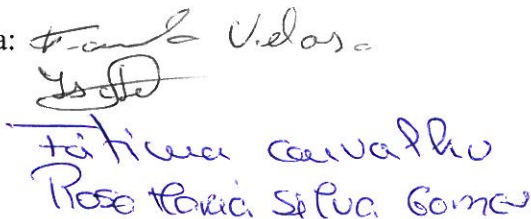 a: Velosa
Fátima Carvalho
Rosa Maria Silva Gomes